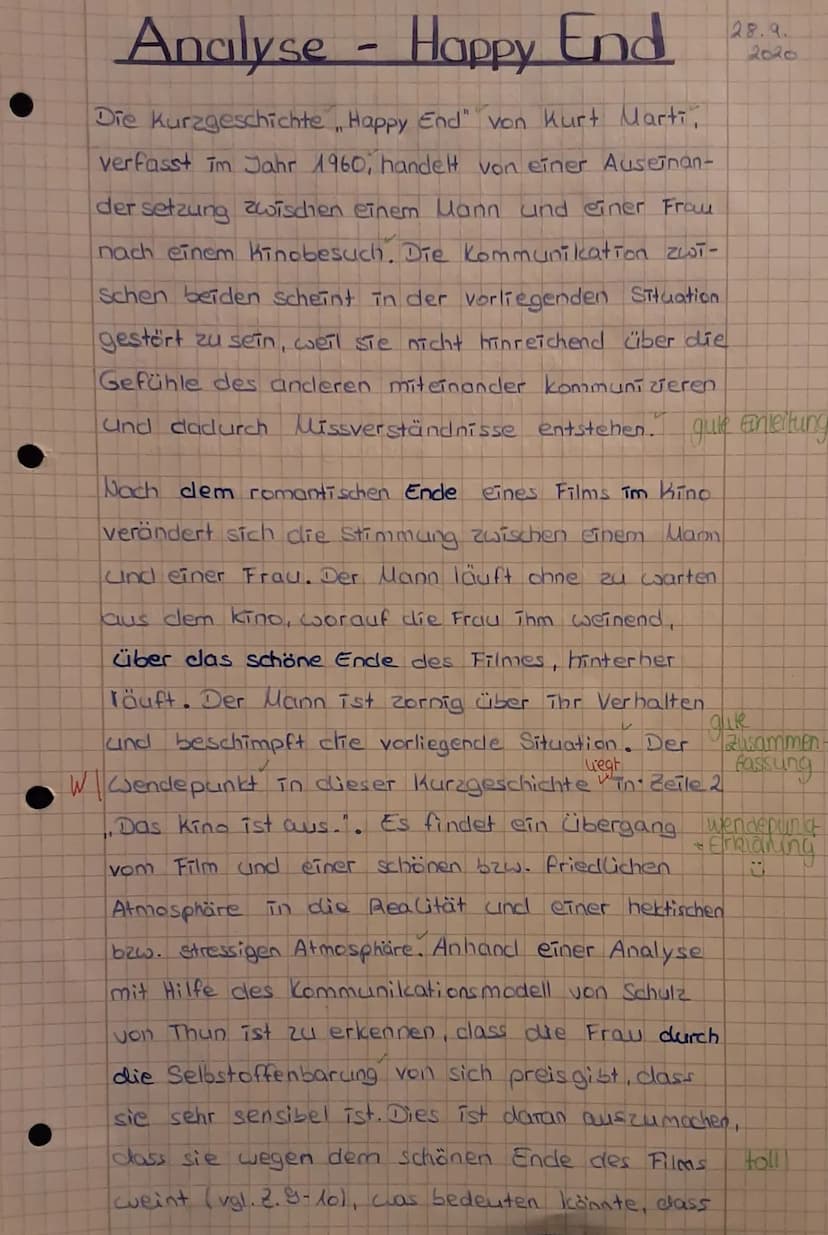 Analyse - Happy End
28.9.
2020
Die Kurzgeschichte „Happy End" von Kurt Marti,
verfasst im Jahr 1960, handelt von einer Auseinan-
dersetzung zwischen einem Mann und einer Frau
nach einem Kinobesuch. Die Kommunikation zwi-
schen beiden scheint in der vorliegenden Situation
gestört zu sein, weil sie nicht hinreichend über die
Gefühle des anderen miteinander kommunizieren
und dadurch Missverständnisse entstehen. gute Einleitung
Nach dem romantischen Ende eines Films im Kino
verändert sich die Stimmung zwischen einem Mann
und einer Frau. Der Mann läuft ohne zu warten
aus dem Kino, worauf die Frau ihm weinend,
über das schöne Ende des Filmes, hinterher
läuft. Der Mann ist zornig über ihr Verhalten
und beschimpft die vorliegende Situation. Der
gute
Zusammen-
fassung
W| Wendepunkt in dieser Kurzgeschichte liegt in Zeile 2
„Das Kino ist aus.". Es findet ein Übergang
Wendepunkt
+ Erklärung
vom Film und einer schönen bzw. friedlichen
Atmosphäre in die Realität und einer hektischen
bzw. stressigen Atmosphäre. Anhand einer Analyse
mit Hilfe des Kommunikationsmodell von Schulz
von Thun ist zu erkennen, dass die Frau durch
die Selbstoffenbarung von sich preisgibt, dass
sie sehr sensibel ist. Dies ist daran auszumachen,
dass sie wegen dem schönen Ende des Films toll!
weint (vgl. Z. 9-10), was bedeuten könnte, dass